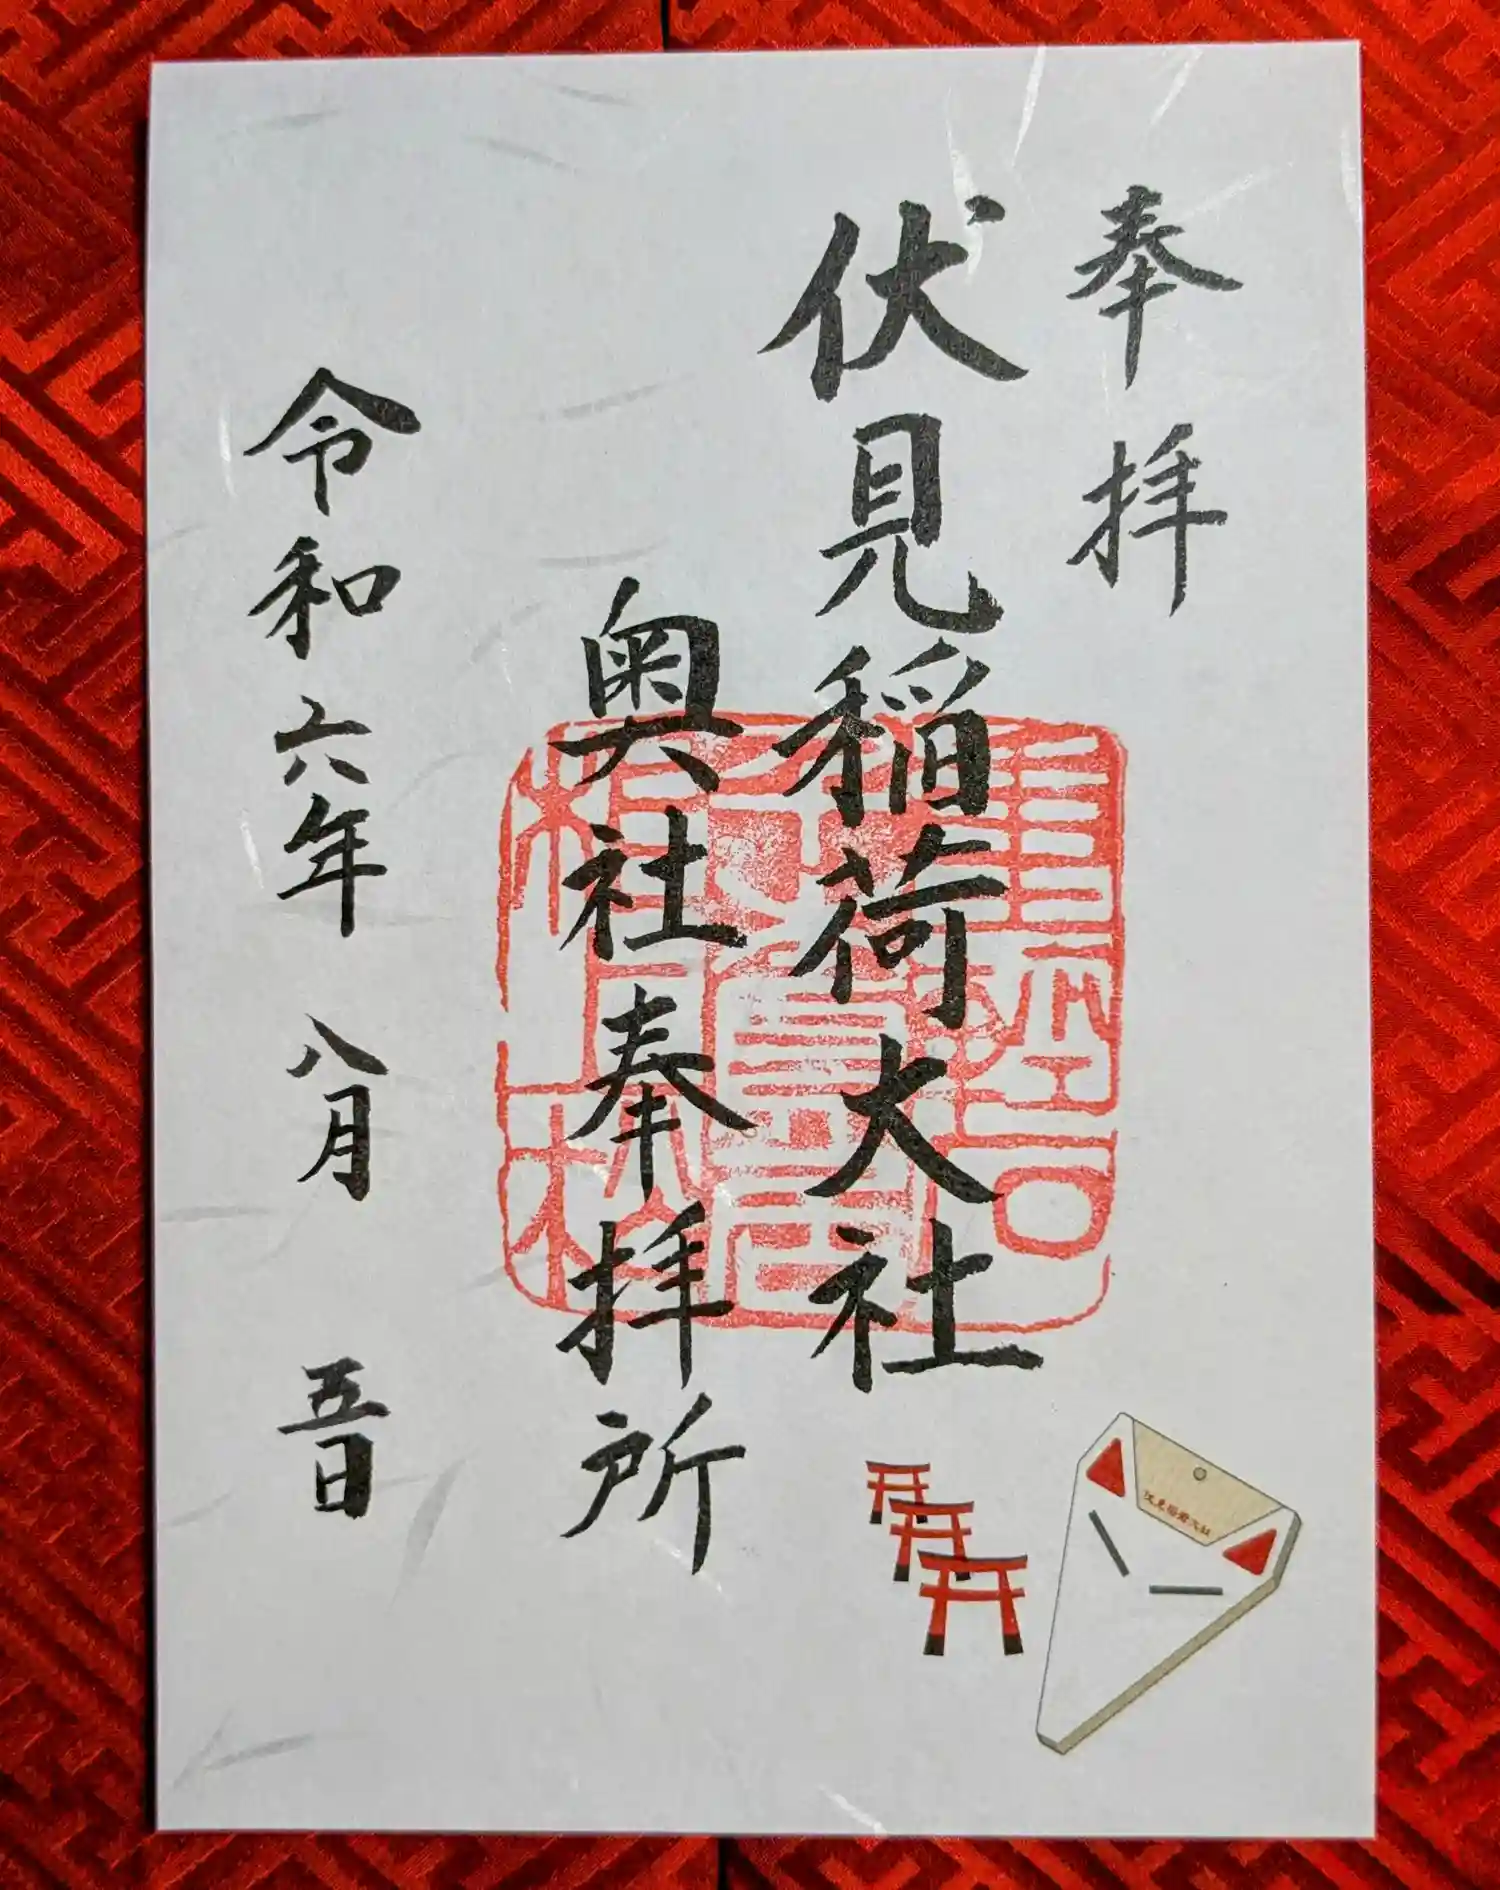 奉拝
伏見稲荷大社
奥社奉拝所
令和六年八月五日
伏見稲荷大社